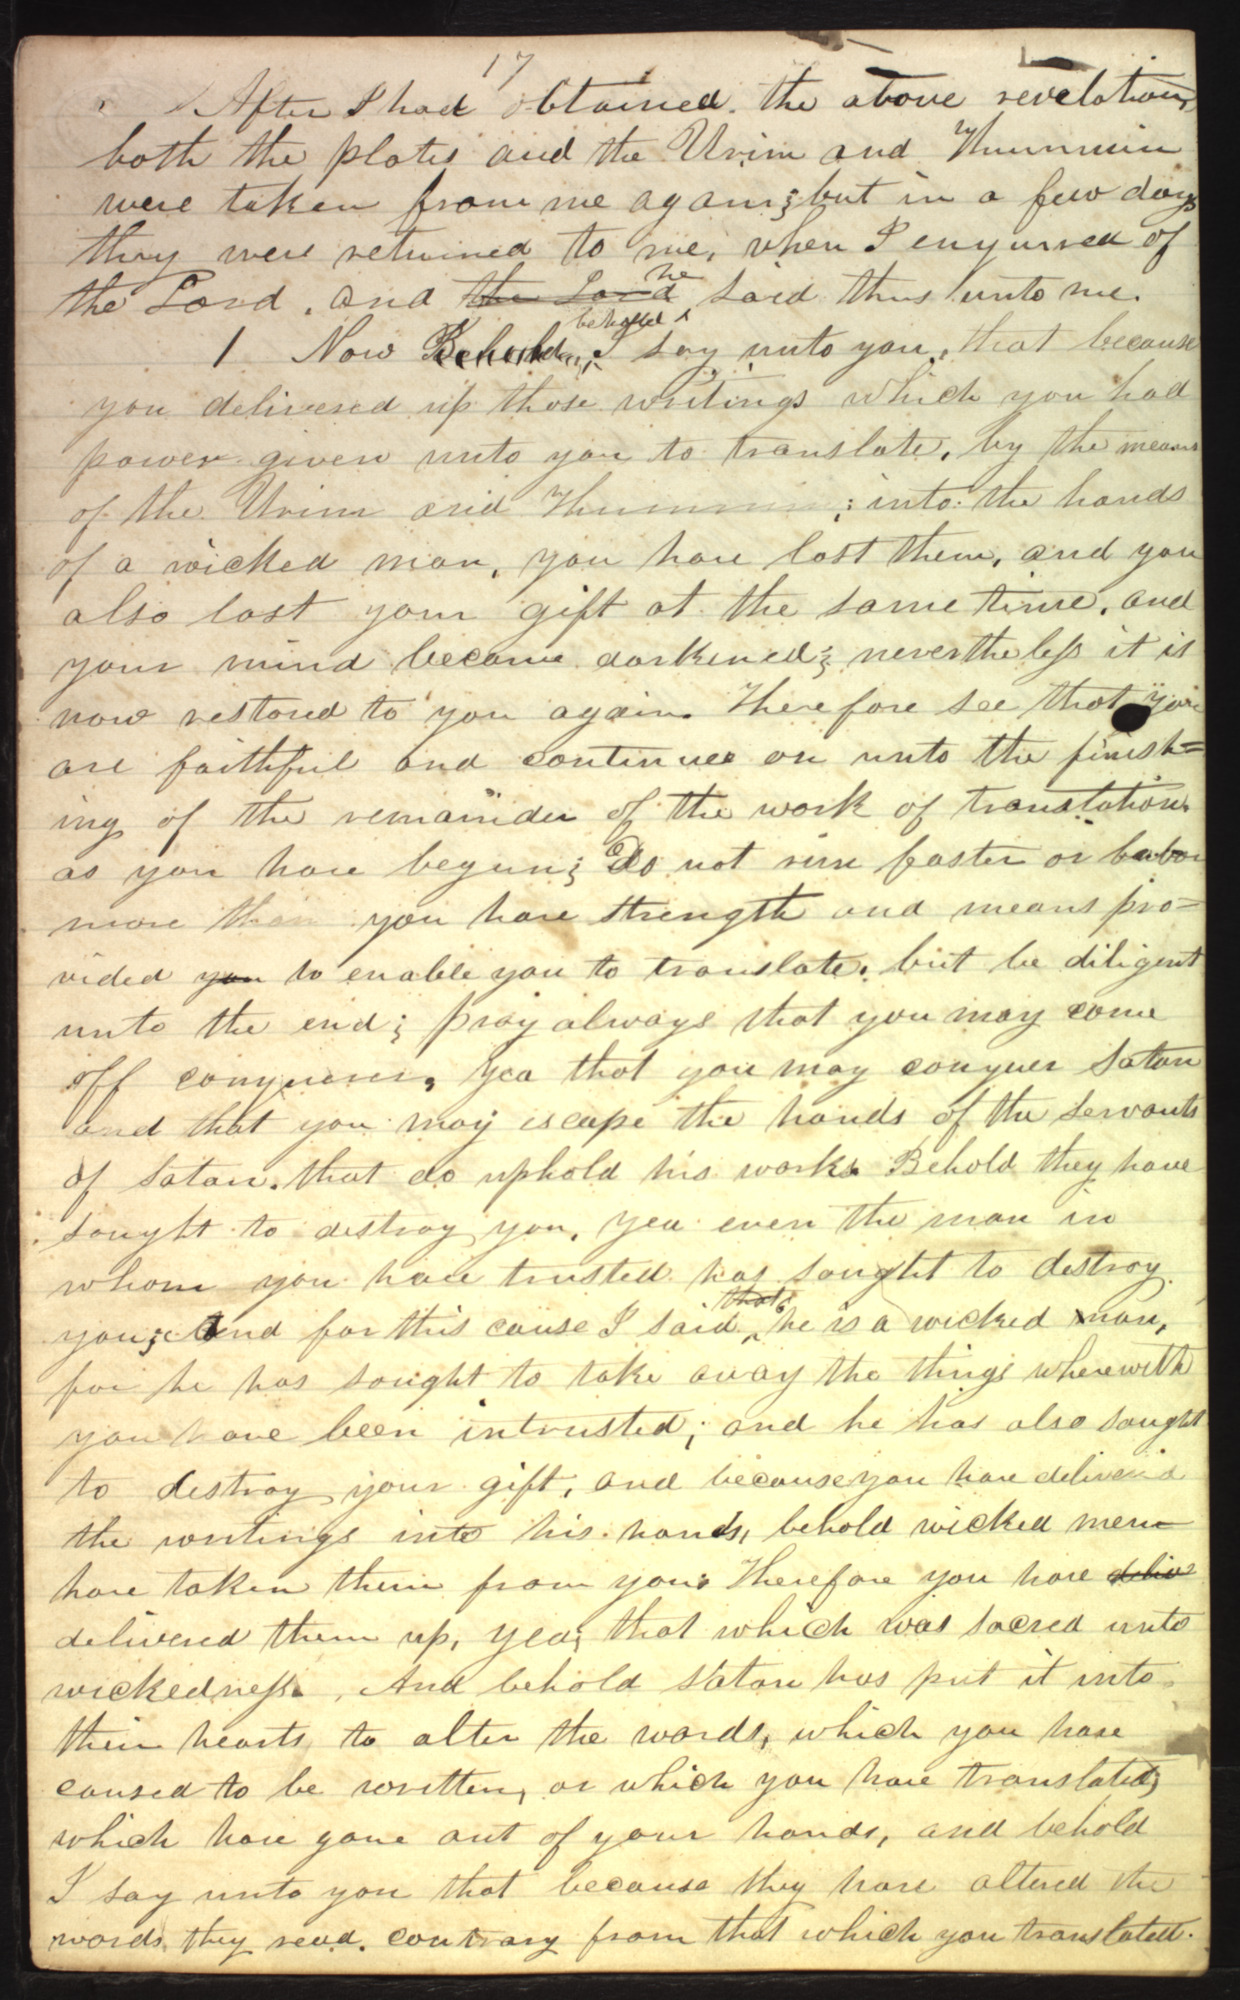 17
After I had obtained the above revelation,
both the plates and the Urim and Thummim
were taken from me again; but in a few days
they were returned to me, when I enquired of
the Lord, and the Lord he said thus unto me.
1 Now Behold, behold I say unto you, that because
you delivered up those writings which you had
power given unto you to translate, by the means
of the Urim and Thummim; into the hands
of a wicked man, you have lost them, and you
also lost your gift at the same time, and
your mind became darkened; nevertheless it is
now restored to you again. Therefore see that you
are faithful and continue on unto the finish=
ing of the remainder of the work of translation
as you have begun; Do not run faster or labor
more than you have strength and means pro=
vided you to enable you to translate. but be diligent
unto the end; pray always that you may come
off conqueror, yea that you may conquer Satan
and that you may escape the hands of the servants
of Satan. that do uphold his work. Behold they have
sought to destroy you, yea even the man in
whom you have trusted has sought to destroy
you; And for this cause I said that he is a wicked man,
for he has sought to take away the things wherewith
you have been intrusted; and he has also sought
to destroy your gift, and because you have delivered
the writings into his hands, behold wicked men
have taken them from you: Therefore you have deliv
delivered them up, yea, that which was sacred unto
wickedness. And behold Satan has put it into
their hearts to alter the words, which you have
caused to be written, or which you have translated,
which have gone out of your hands, and behold
I say unto you that because they have altered the
words they read contrary from that which you translated.